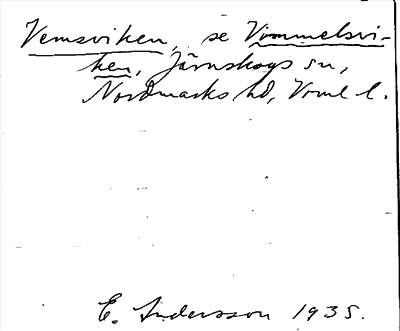 Vemsviken, se Vimmelsvi-
ken, Järnskogs sn,
Nordmarks hd, Vrml l.
E. Andersson 1935.